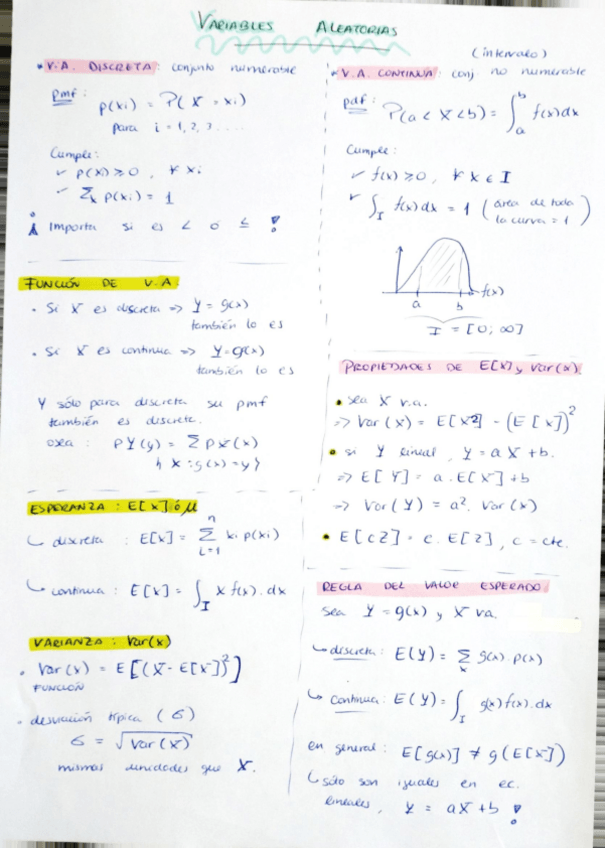 VARIABLES ALEATORIAS
* V.A. DISCRETA: conjunto numerable
pmf: p(xi) = P(X = xi)
para i = 1, 2, 3 ....
Cumple:
✓ p(x) ≥ 0, ∀ xi
✓ Σx p(xi) = 1
¡ Importa si es < ó ≤ !
FUNCIÓN DE V.A.
• Si X es discreta => Y = g(x)
también lo es
• Si X es continua => Y = g(x)
también lo es
Y sólo para discreta su pmf
también es discreta.
osea: PY(y) = Σ PX(x)
{x : g(x) = y}
ESPERANZA: E[x] ó μ
↳ discreta: E[x] = Σ_{i=1}^{n} xi p(xi)
↳ continua: E[x] = ∫_I x f(x). dx
VARIANZA: Var(x)
• Var(x) = E[(X - E[X])²]
FUNCIÓN
• desviación típica (σ)
σ = √Var(X)
mismas unidades que X.
(intervalo)
* V.A. CONTINUA: conj. no numerable
pdf: P(a < X < b) = ∫_a^b f(x)dx
Cumple:
✓ f(x) ≥ 0, ∀ x ∈ I
✓ ∫_I f(x) dx = 1 (área de toda
la curva = 1)
f(x)
a b
I = [0, ∞]
PROPIEDADES DE E[X] y Var(x).
• Sea X v.a.
=> Var(x) = E[X²] - (E[X])²
• si Y lineal, Y = aX + b.
=> E[Y] = a. E[X] + b
=> Var(Y) = a². Var(x)
• E[cZ] = c. E[Z], c = cte.
REGLA DEL VALOR ESPERADO.
Sea Y = g(x) y X va.
↳ discreta: E(Y) = Σx g(x). p(x)
↳ Continua: E(Y) = ∫_I g(x) f(x). dx
en general: E[g(x)] ≠ g(E[X])
↳ sólo son iguales en ec.
lineales, Y = aX + b !